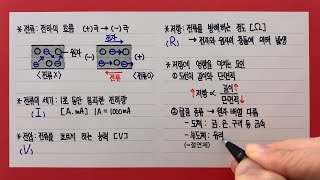 * 전류: 전하의 흐름 (+)극 → (-)극
전자
원자
(전류X)
전류
(전류O)
* 전류의 세기: 1초 동안 통과한 전하량
(I)
[A, mA] 1A = 1000mA
* 전압: 전류를 흐르게 하는 능력 [V]
(V)
* 저항: 전류를 방해하는 정도 [Ω]
(R)
→ 전자와 원자의 충돌에 의해 발생
* 저항에 영향을 미치는 요인
① 도선의 길이와 단면적
↑저항 ∝ 길이↑
단면적↓
② 물질 종류 → 원자 배열 다름
- 도체: 금, 은, 구리 등 금속
- 부도체: 유리
(=절연체)